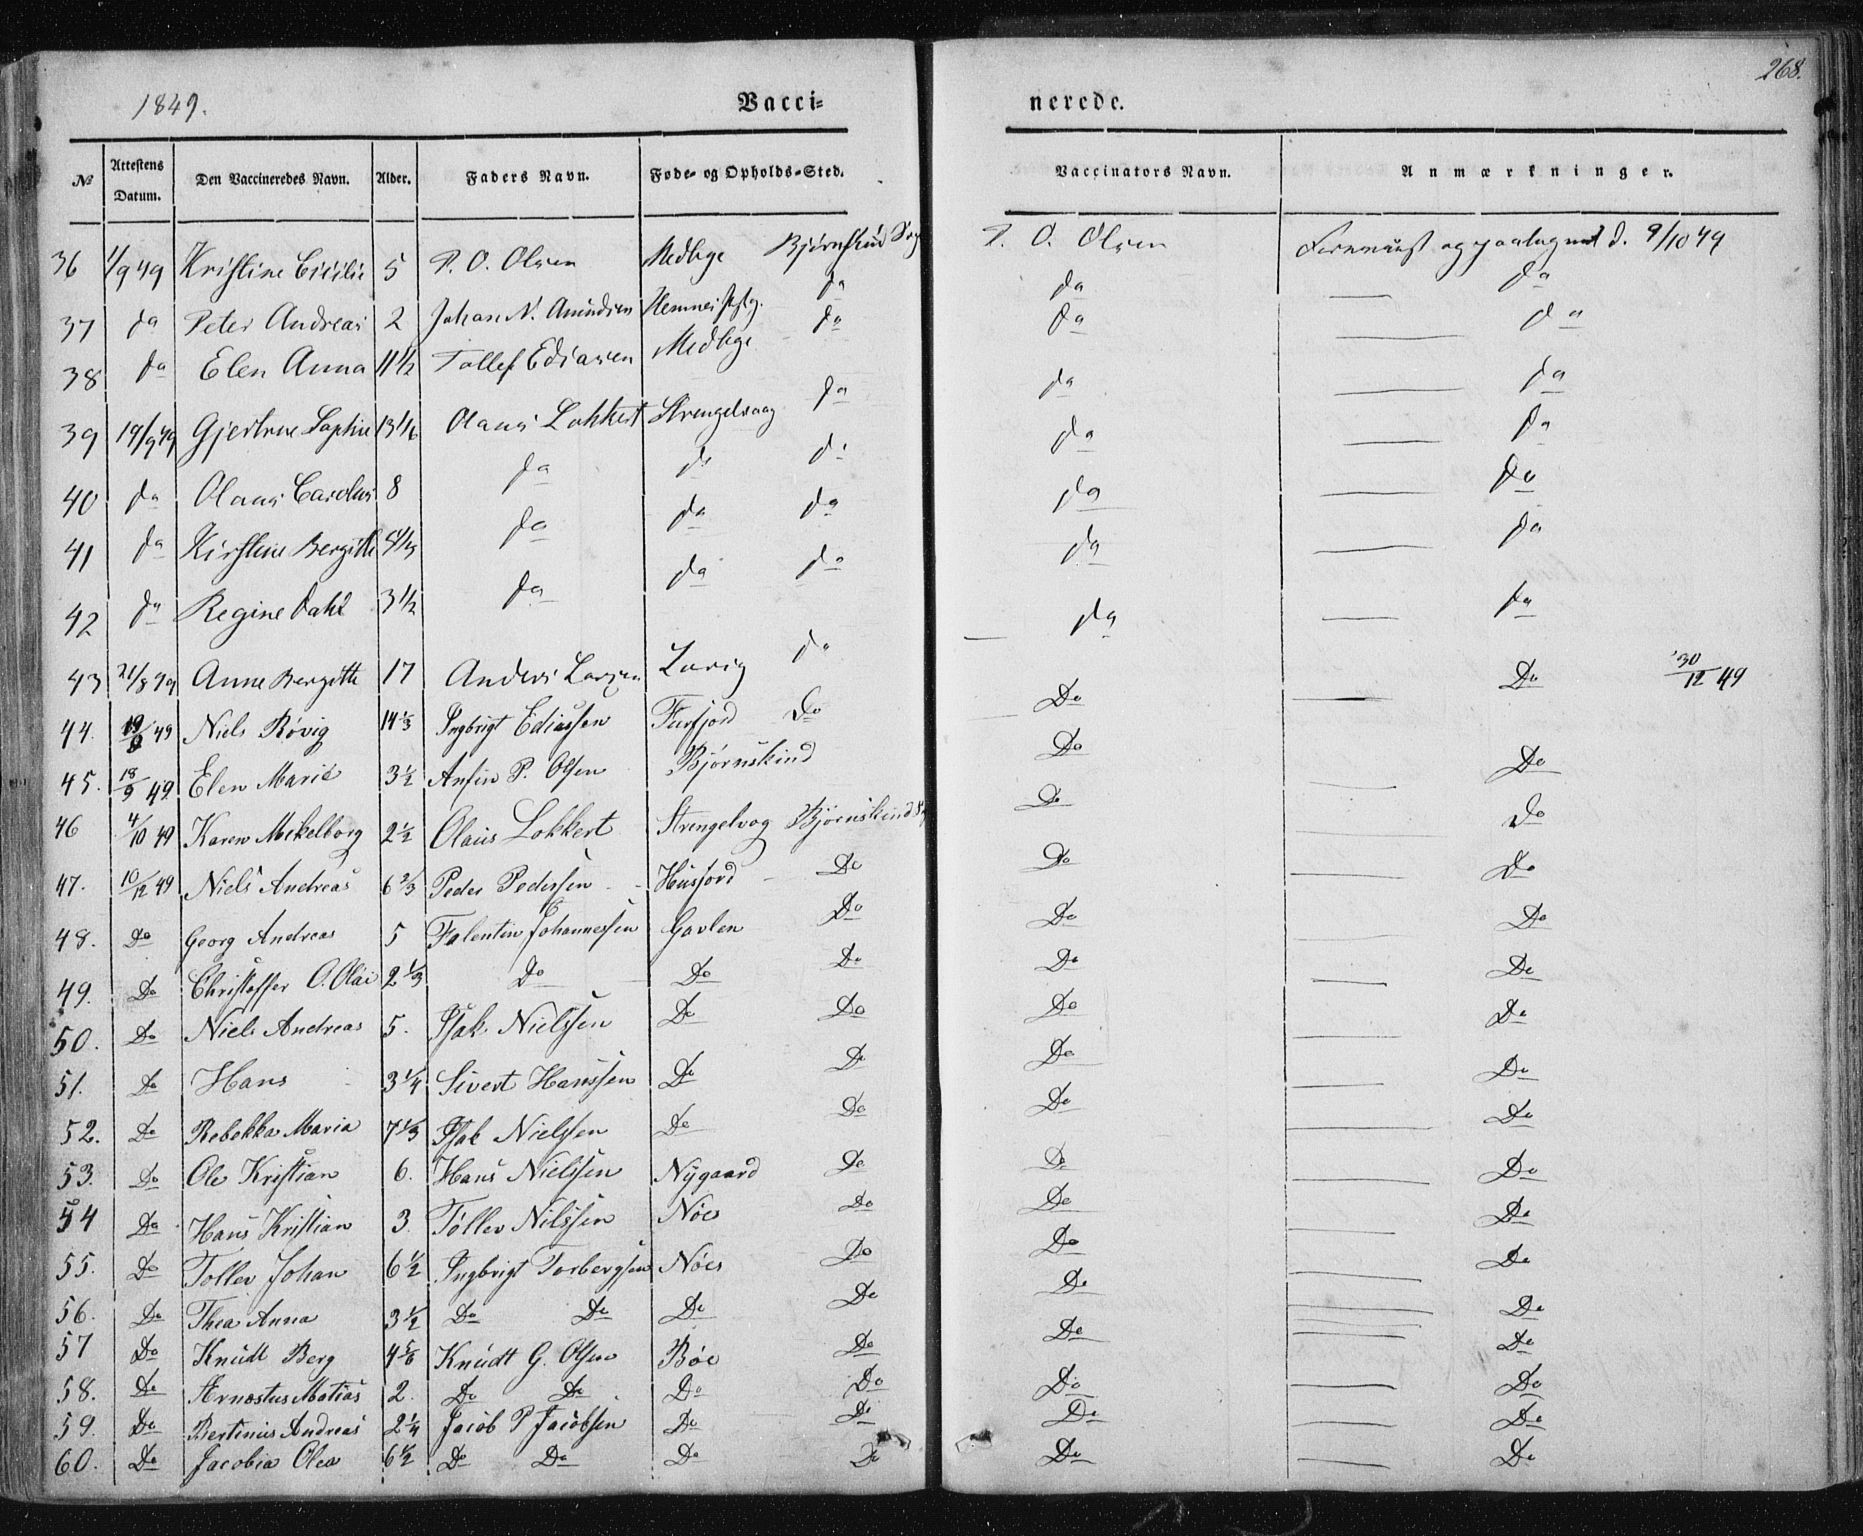 268.
1849. Vacci= nerede.
№ Attestens Datum. Den Vaccineredes Navn. Alder. Faders Navn. Føde- og Opholds-Sted. Vaccinators Navn. Anmærkninger.
36 1/9 49 Kristine Cicilie 5 P. O. Olsen Medbye Bjørnskind P. O. Olsen og d. 9/10 49
37 do Peter Andreas 2 Johan N. Amundsen Hemnes do do do
38 do Elen Anna 11 1/2 Tollef Ediasen Medbye do do do
39 19/9 49 Gjertrue Sophie 13 1/6 Olaus Lokkert Strengelvaag do do do
40 do Olaus Carolus 8 do do do do do
41 do Kirstine Bergitte do do do do do
42 do Regine Dahl 3 1/2 do do do do do
43 21/8 49 Anne Bergitte 17 Anders Larsen do do do
44. 19/8 49 Niels Røvig 14 1/3 Ingbrigt Ediassen Furfjord Do Do Do 30/12 49
45. 18/9 49 Elen Marie 3 1/2 Anfin P. Olsen Bjørnskind Do Do
46 4/10 49 Karen Mekelborg 2 1/2 Olaus Lokkert Strengelvog Bjørnskind Do Do
47. 10/12 49 Niels Andreas 6 2/3 Peder Pederssen Husfjord Do Do Do
48. Do Georg Andreas 5 Falentin Johannessen Gavlen Do Do Do
49. Do Christoffer O. Olai 2 1/3 Do Do Do Do Do
50. Do Niels Andreas 5. Isak Nielssen Do Do Do Do
51. Do Hans 3 1/4 Sivert Hanssen Do Do Do Do
52. Do Rebekka Maria 7 1/3 Isak Nielssen Do Do Do Do
53. Do Ole Kristian 6. Hans Nielssen Nygaard Do Do Do
54 Do Hans Kristian 3 Tøllev Nilssen Nöes Do Do Do
55. Do Tollev Johan 6 1/2 Ingbrigt Torbergsen Nöes Do Do Do
56. Do Thea Anna 3 1/2 Do Do Do Do Do Do
57 Do Knudt Berg 4 5/6 Knudt G. Olsen Böe Do Do Do
58. Do Arnostus Matias 2. Do Do Do Do Do Do
59. Do Bertinus Andreas 2 1/4 Jacob P Jacobsen Do Do Do Do
60. Do Jacobia Olea 6 1/2 Do Do Do Do Do Do